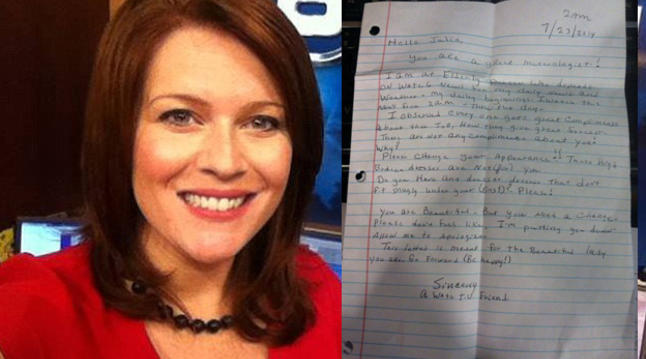 6
2am
7/23/2014
Hello Julie
You are a great meteorologist!
I am an Elderly who depends
on News for my daily news and
Weather - my daily beginning: I watch this
News from 2am - thru the day.
I observed every one gets great compliments
About the Job, How they give great Service.
There are not any compliments about you?
Why?
Please change your Appearance! Those
dresses are Not (for) you.
Do you Have any dresses that don't
fit snugly under your Please!
You are Beautiful - But you need a change
Please don't feel like I'm putting you down
Allow me to Apologize
This letter is meant for the Beautiful lady
you see. Go Forward (Be happy!)
Sincerely
a T.V. Friend